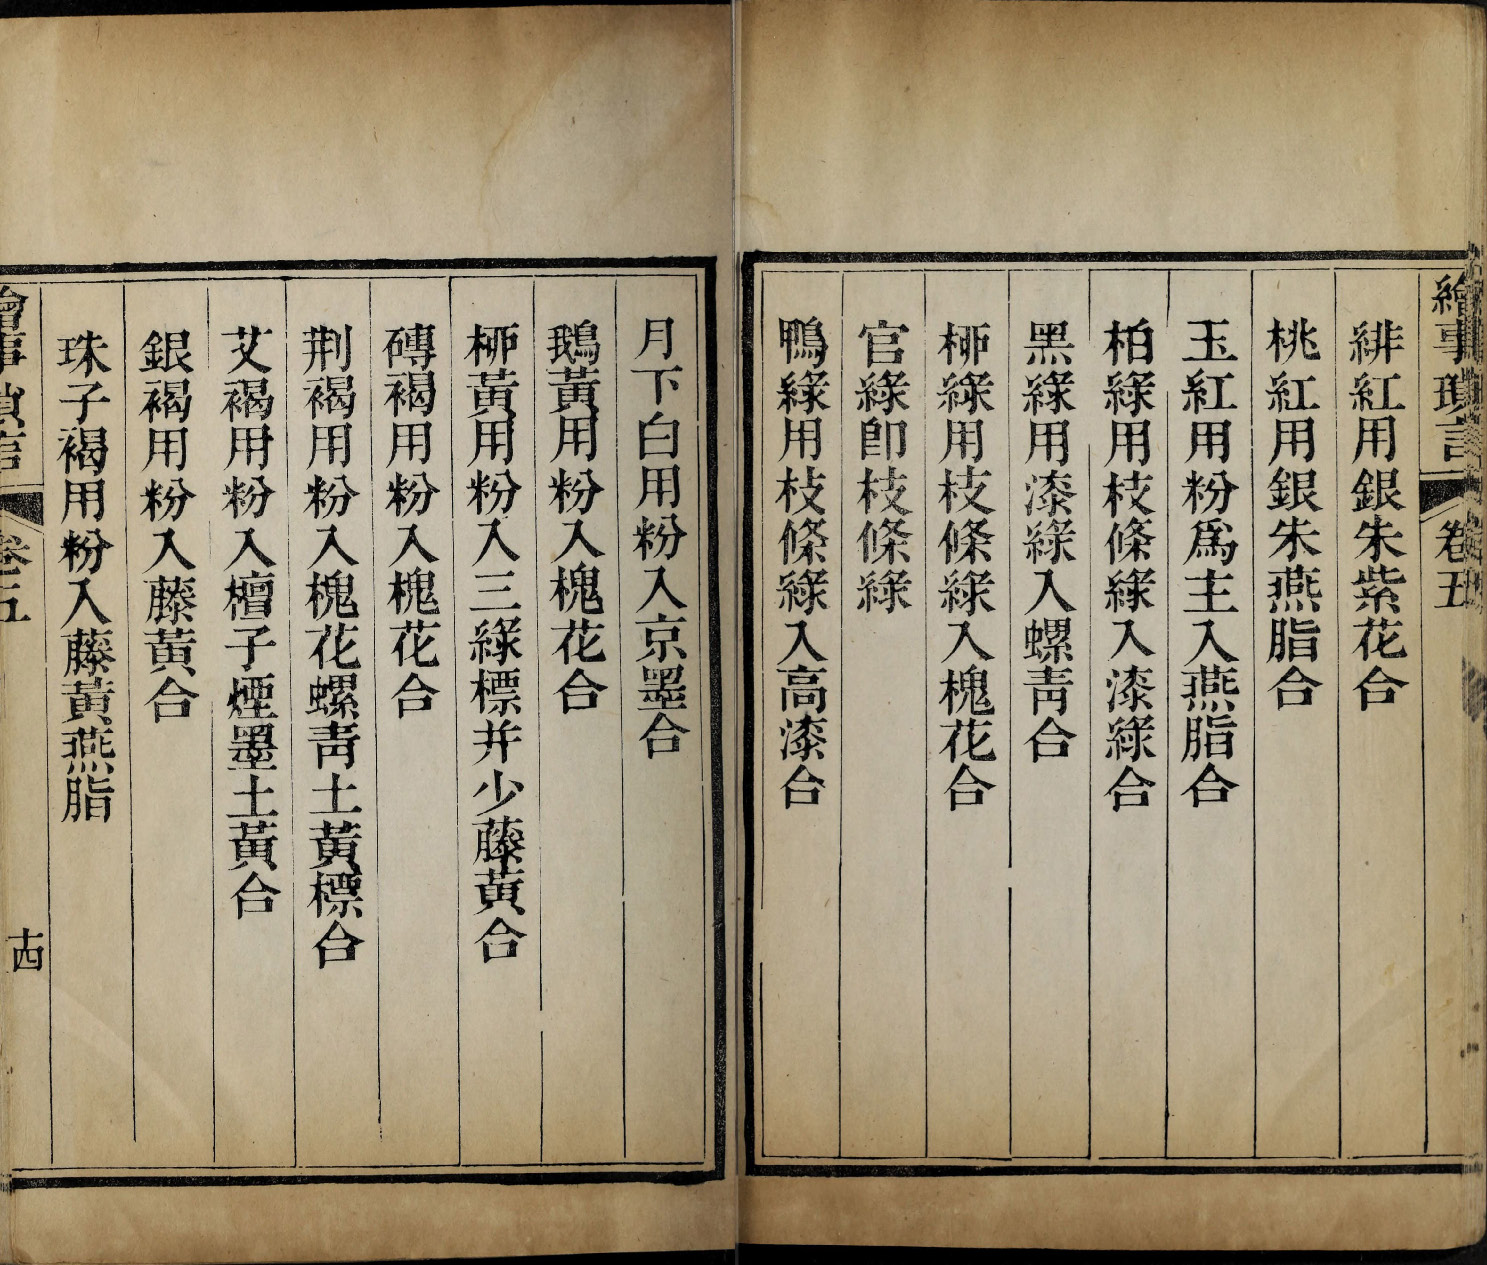 繪事瑣言 卷五
緋紅用銀朱紫花合
桃紅用銀朱燕脂合
玉紅用粉爲主入燕脂合
柏綠用枝條綠入漆綠合
黑綠用漆綠入螺靑合
桺綠用枝條綠入槐花合
官綠卽枝條綠
鴨綠用枝條綠入高漆合
月下白用粉入京墨合
鵝黃用粉入槐花合
桺黃用粉入三綠標幷少藤黃合
磚褐用粉入槐花合
荆褐用粉入槐花螺靑土黃標合
艾褐用粉入檀子煙墨土黃合
銀褐用粉入藤黃合
珠子褐用粉入藤黃燕脂
繪事瑣言 卷五 十四